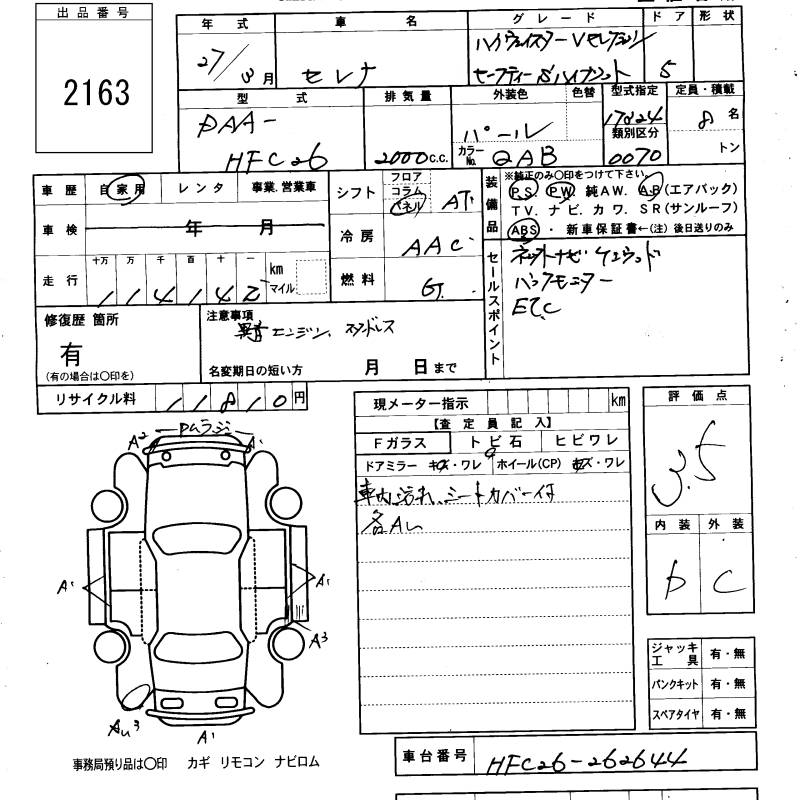 出品番号
2163
年式 車名 グレード ドア 形状
27/3月 セレナ ハイウェイスターVセレクション
セーフティーSハイブリット 5
型式 排気量 外装色 色替 型式指定 定員・積載
DAA- パール 17824 8名
類別区分
HFC26 2000C.C. カラーNo. QAB 0070 トン
車歴 自家用 レンタ 事業.営業車
シフト フロア コラム パネル AT
装備品
※純正のみ○印をつけて下さい。
PS PW 純AW. AB(エアバック)
TV. ナビ. カワ. SR(サンルーフ)
ABS ・ 新車保証書←(注) 後日送りのみ
車検 年 月
冷房 AAC
走行 十万 万 千 百 十 一
114142 km マイル
燃料 G.
セールスポイント
ネットナビ ケンウッド
バックモニター
ETC
修復歴 箇所
有
(有の場合は○印を)
注意事項
エンジン、スタッドレス
名変期日の短い方 月 日まで
リサイクル料 11810円
現メーター指示 km
【査定員記入】
Fガラス トビ石 ヒビワレ
ドアミラー キズ・ワレ ホイール(CP) キズ・ワレ
車内汚れ、シートカバー付
各AU
評価点
3.5
内装 外装
D C
A2 A1
A1 A1
A3
AU3
A1
ジャッキ工具 有・無
パンクキット 有・無
スペアタイヤ 有・無
事務局預り品は○印 カギ リモコン ナビロム
車台番号 HFC26-262644